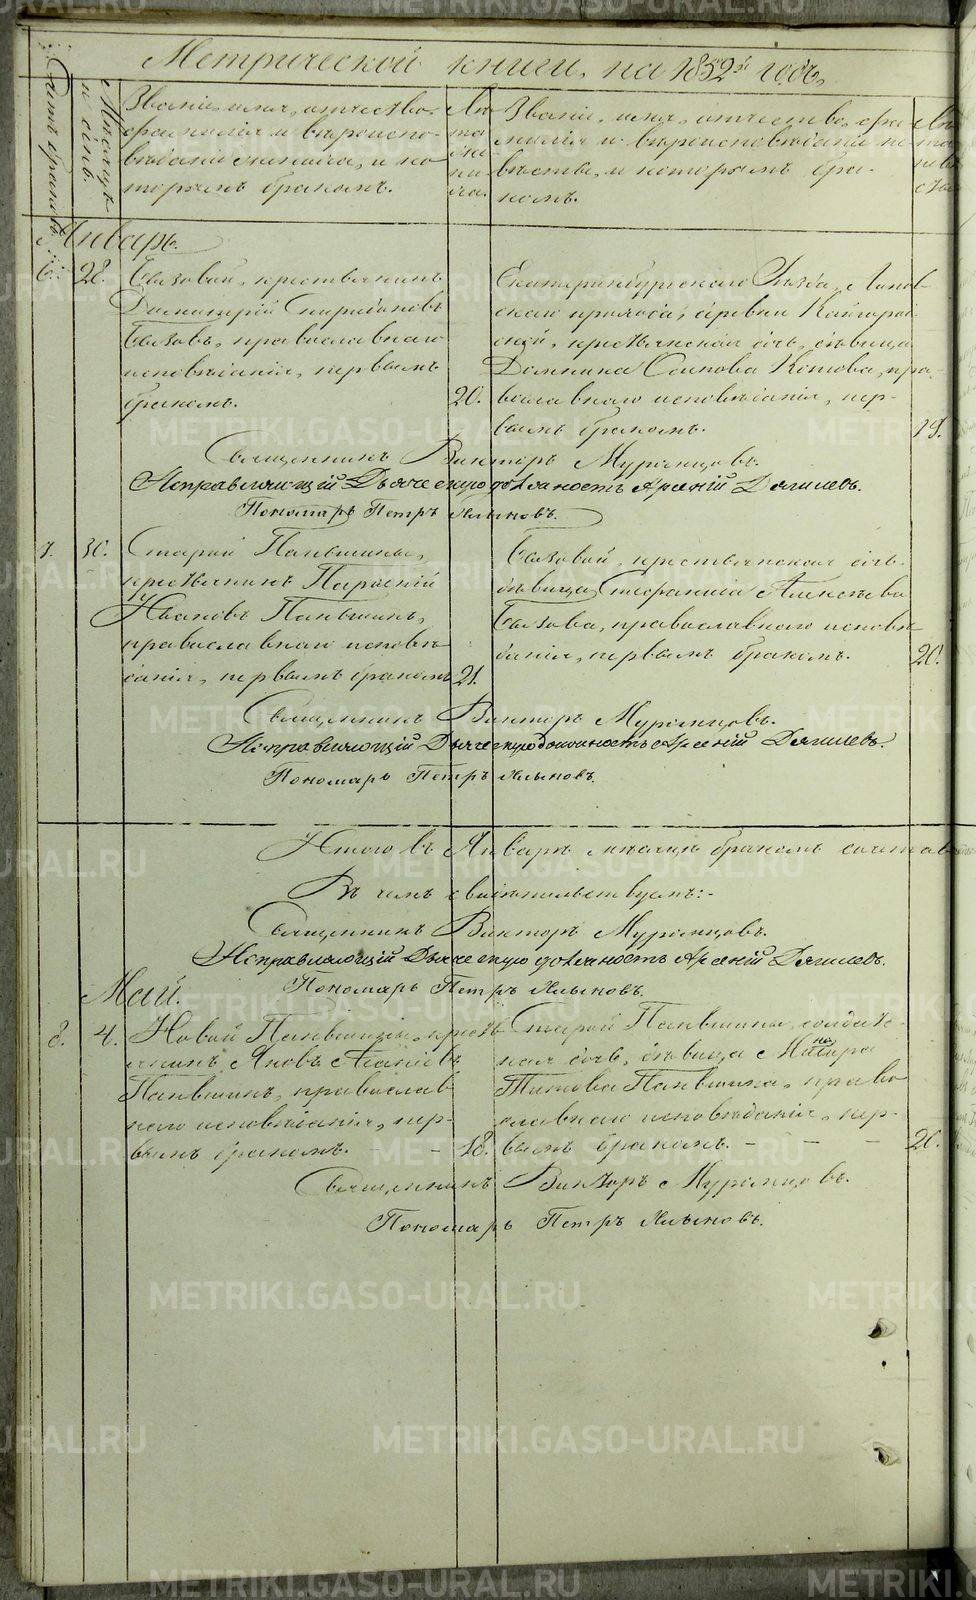 Метрической книги, на 1852й годъ,
Счетъ браковъ.
Мѣсяцъ и день.
Званіе, имя, отчество,
фамилія и вѣроиспо-
вѣданіе жениха, и ко-
торымъ бракомъ.
Лѣ-
та
же-
ни-
ха.
Званіе, имя, отчество, фа-
милія и вѣроисповѣданіе не-
вѣсты, и которымъ бра-
комъ.
Январь.
6. 28.
крестьянинъ
Димитрій Спиридоновъ
православнаго
исповѣданія, первымъ
бракомъ. 20.
Екатеринбургскаго Уѣзда,
скаго прихода, деревни
крестьянская дочь, дѣвица
Домника Осипова Котова, пра-
вославнаго исповѣданія, пер-
вымъ бракомъ. 19.
Священникъ Викторъ Муромцовъ.
Исправляющій Дьяческую должность Арсеній Дягилевъ.
Пономарь Петръ Ляпуновъ.
7. 30.
Старой Паньшины,
крестьянинъ
Ивановъ Паньшинъ,
православнаго исповѣ-
данія, первымъ бракомъ 21.
крестьянская дочь,
дѣвица Стефанида Алексѣева
православнаго исповѣ-
данія, первымъ бракомъ. 20.
Священникъ Викторъ Муромцовъ.
Исправляющій Дьяческую должность Арсеній Дягилевъ.
Пономарь Петръ
Итого въ Январѣ мѣсяцѣ бракомъ сочетав
Въ чемъ свидѣтельствуемъ:-
Священникъ Викторъ Муромцовъ.
Исправляющій Дьяческую должность Арсеній Дягилевъ.
Пономарь Петръ
Май.
8. 4.
Новой Паньшины, кресть-
янинъ Яковъ
Паньшинъ, православ-
наго исповѣданія, пер-
вымъ бракомъ. - - 18.
Старой Паньшины, солдат-
ская дочь, дѣвица
Титова Паньшина, право-
славнаго исповѣданія, пер-
вымъ бракомъ. - - - 20.
Священникъ Викторъ Муромцовъ.
Пономарь Петръ
METRIKI.GASO-URAL.RU